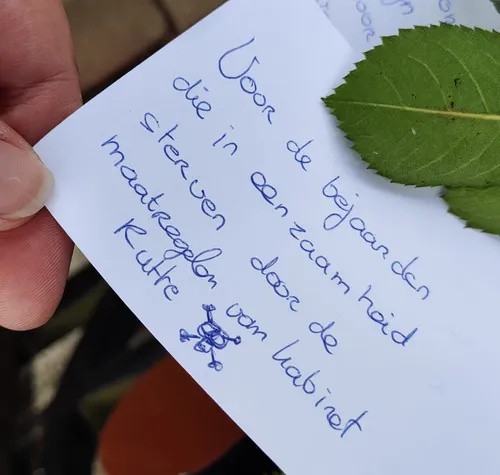 Voor de bejaarden
die in eenzaamheid
sterven door de
maatregelen van kabinet
Rutte